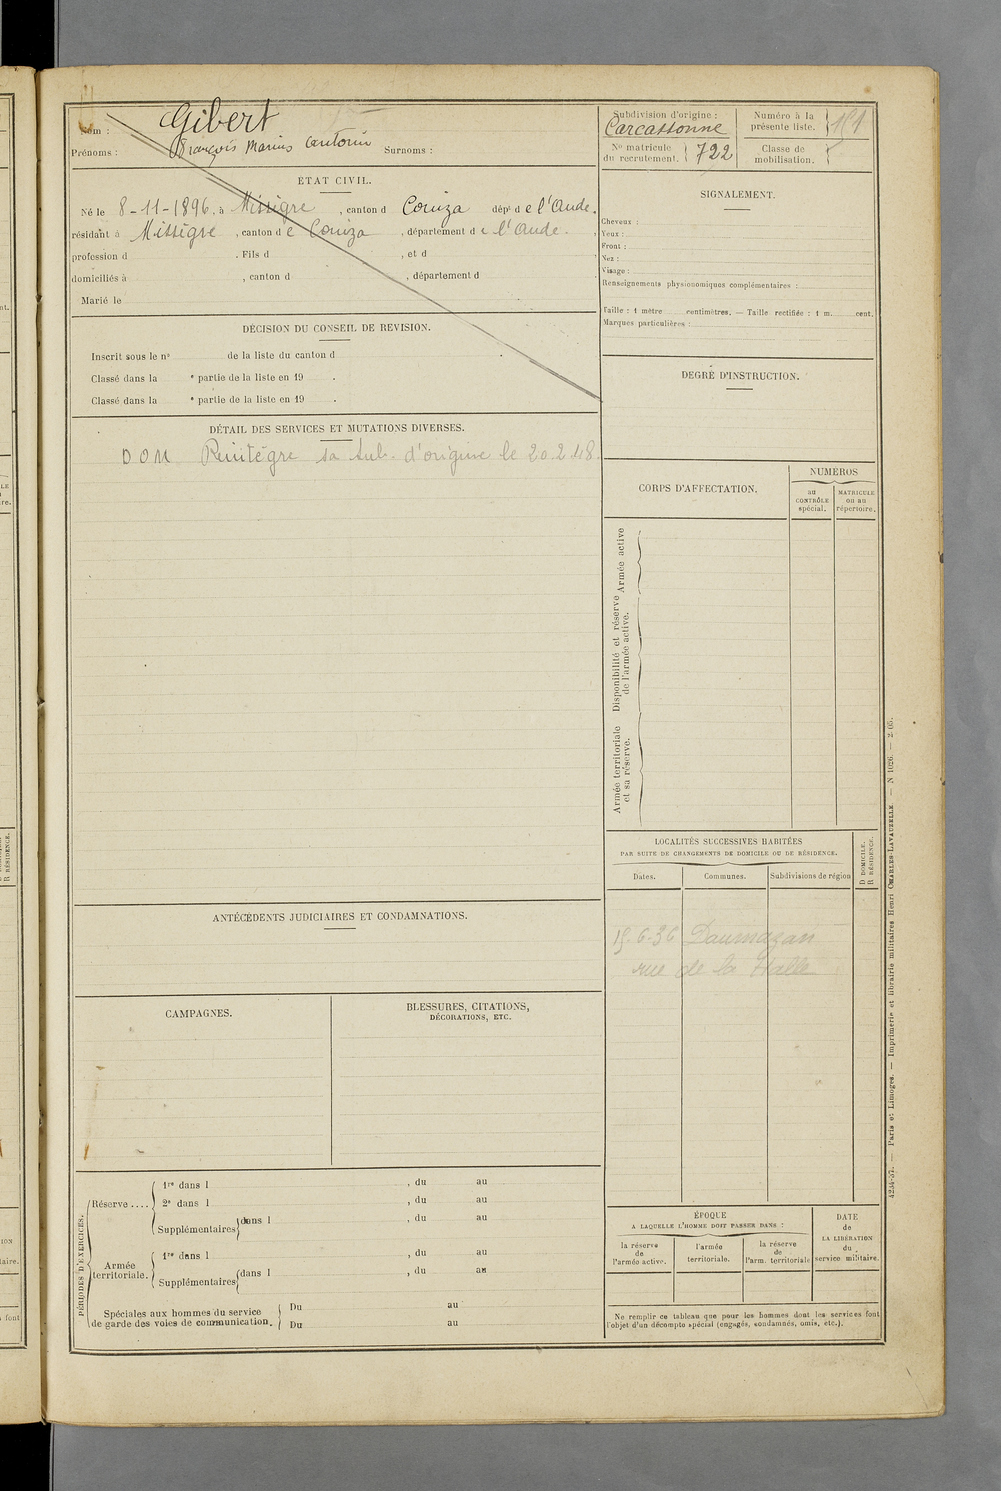 Nom : Gibert
Prénoms : François Marius Antonin Surnoms :
Subdivision d'origine :
Carcassonne
Nº matricule du recrutement. 722
Numéro à la présente liste. 151
Classe de mobilisation.
ÉTAT CIVIL.
Né le 8-11-1896, à Missègre, canton d Couiza dépt de l'Aude.
résidant à Missègre, canton de Couiza, département de l'Aude.
profession d , Fils d , et d ,
domiciliés à , canton d , département d
Marié le
SIGNALEMENT.
Cheveux :
Yeux :
Front :
Nez :
Visage :
Renseignements physionomiques complémentaires :
Taille : 1 mètre centimètres. — Taille rectifiée : 1 m. cent.
Marques particulières :
DÉCISION DU CONSEIL DE REVISION.
Inscrit sous le nº de la liste du canton d
Classé dans la e partie de la liste en 19 .
Classé dans la e partie de la liste en 19 .
DEGRÉ D'INSTRUCTION.
DÉTAIL DES SERVICES ET MUTATIONS DIVERSES.
DOM Réintègre sa sub. d'origine le 20.2.48.
CORPS D'AFFECTATION.
NUMÉROS
au CONTRÔLE spécial.
MATRICULE ou au répertoire.
Armée active
Disponibilité et réserve de l'armée active.
Armée territoriale et sa réserve.
LOCALITÉS SUCCESSIVES HABITÉES
PAR SUITE DE CHANGEMENTS DE DOMICILE OU DE RÉSIDENCE.
D DOMICILE.
R RÉSIDENCE.
Dates. Communes. Subdivisions de région
15-6-36 Daumazan
rue de la Halle
ANTÉCÉDENTS JUDICIAIRES ET CONDAMNATIONS.
CAMPAGNES.
BLESSURES, CITATIONS,
DÉCORATIONS, ETC.
PÉRIODES D'EXERCICES.
Réserve ....
1re dans l , du au
2e dans l , du au
Supplémentaires dans l , du au
Armée territoriale.
1re dans l , du au
Supplémentaires dans l , du au
Spéciales aux hommes du service
de garde des voies de communication.
Du au
Du au
ÉPOQUE
A LAQUELLE L'HOMME DOIT PASSER DANS :
la réserve de l'armée active.
l'armée territoriale.
la réserve de l'arm. territoriale
DATE de LA LIBÉRATION du service militaire.
Ne remplir ce tableau que pour les hommes dont les services font
l'objet d'un décompte spécial (engagés, condamnés, omis, etc.).
4234-37. — Paris et Limoges. — Imprimerie et librairie militaires Henri CHARLES-LAVAUZELLE. — N 1026. — 2-05.